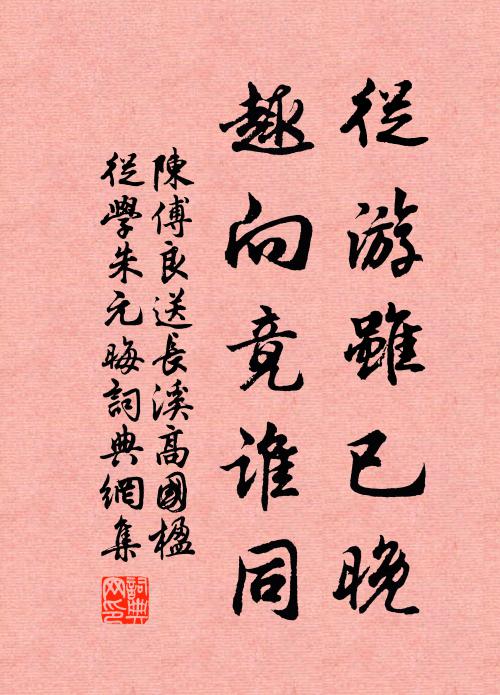 從游雖已晚
趣向竟誰同
陳傅良送長溪高國楹
從學朱元晦詞典網集
詞典
网印